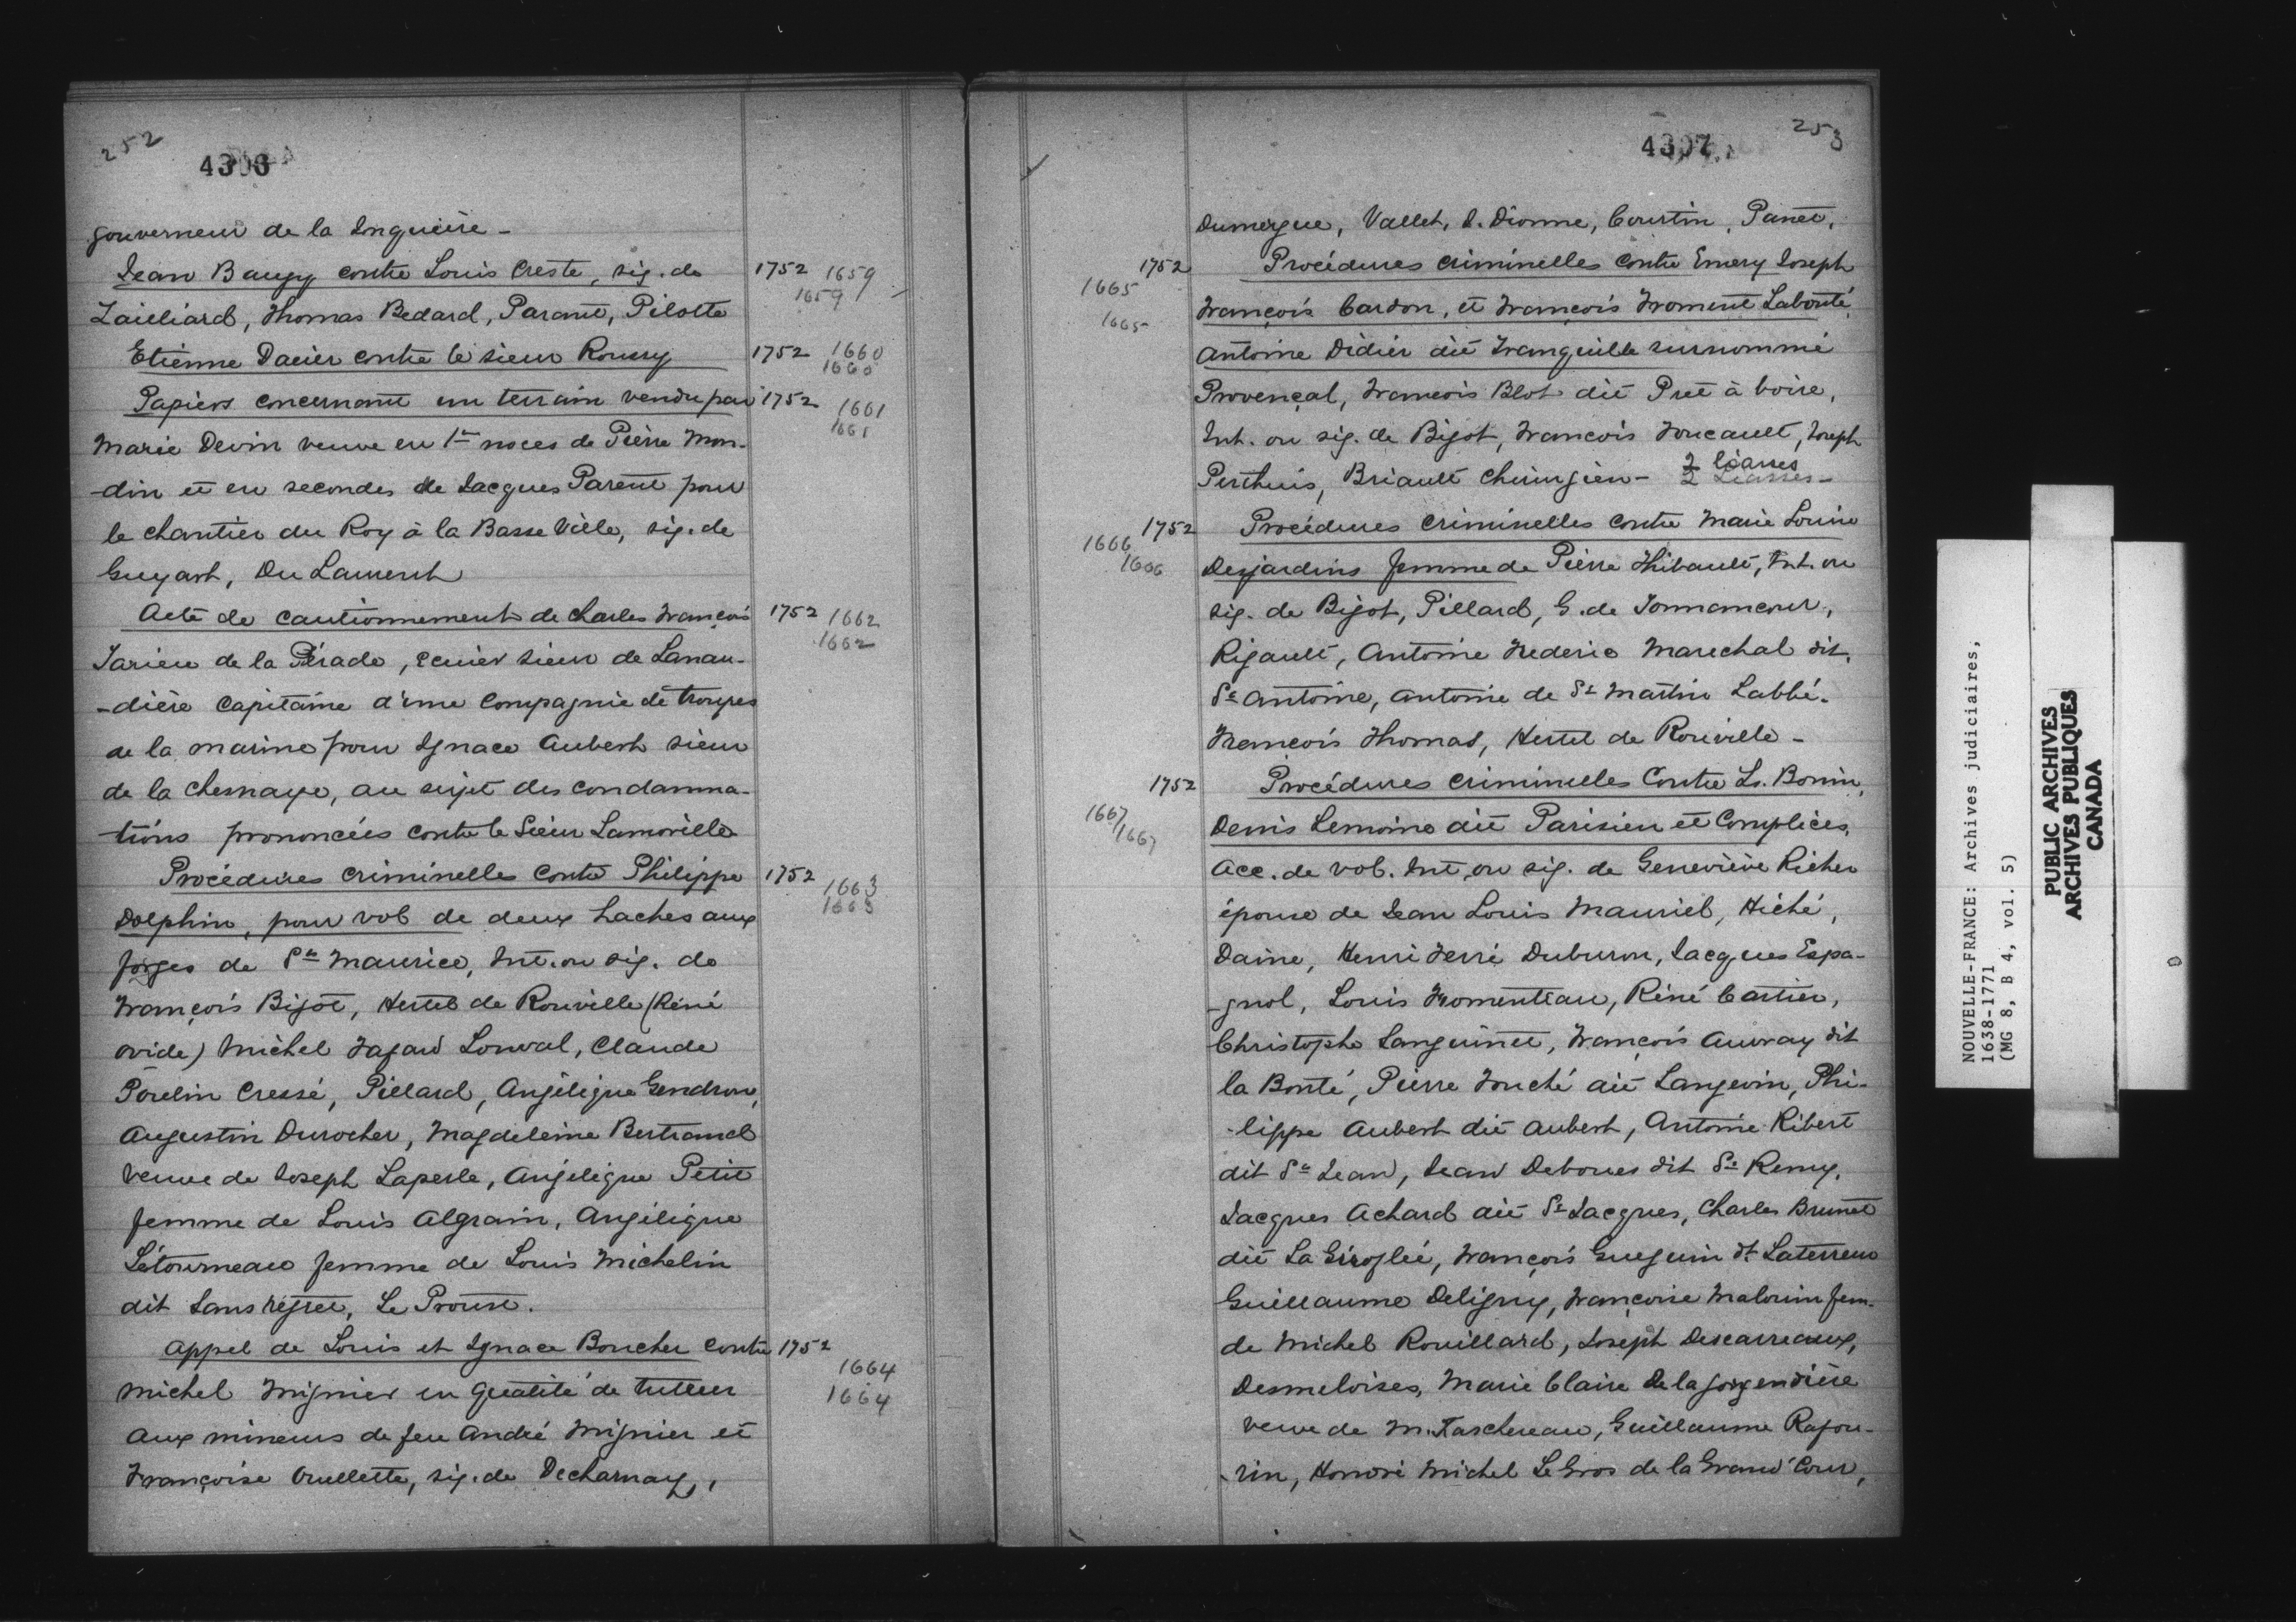 252
4306
gouverneur de la Jnquiére -
Jean Baugy contre Louis Creste, sig. de 1752 1659
1659
Lailliard, Thomas Bedard, Parant, Pilotte
Etienne Dacier contre le sieur Roussy 1752 1660
1660
Papiers concernant un terrain vendu par 1752 1661
1661
Marie Devin veuve en 1re noces de Pierre Mon-
-din et en secondes de Jacques Parent pour
le chantier du Roy à la Basse Ville, sig. de
Guyart, Du Laurent
Acte de cautionnement de Charles François 1752 1662
1662
Tarieu de la Pérade, ecuier sieur de Lanau-
-dière Capitaine d'une Compagnie de troupes
de la marine pour Ignace Aubert sieur
de la Chesnaye, au sujet des condamna-
-tions prononcées contre le Sieur Lamorille
Procédures criminelles contre Philippe 1752 1663
1663
Dolphin, pour vol de deux haches aux
forges de St Maurice, Int. ou sig. de
François Bigot, Hertel de Rouville (Réné
Ovide) Michel Fafard Lonval, Claude
Poulin Cressé, Pillard, Angélique Gendron,
Augustin Durocher, Magdeleine Bertrand
Veuve de Joseph Laperle, Angélique Petit
femme de Louis Algrain, Angélique
Létourneau femme de Louis Michelin
dit Sans regret, Le Proust.
Appel de Louis et Ignace Boucher contre 1752
1664
Michel Mignier en qualité de tuteur
1664
aux mineurs de feu André Mignier et
Françoise Ouellette, sig. de Decharnay,
4307
253
Dumergue, Vallet, J. Dionne, Courtin, Panet,
1752 Procédures criminelles contre Emery Joseph
1665
François Cardon, et François Froment Labonté,
1665
Antoine Didier dit Tranquille surnommé
Provençal, François Blot dit Pret à boire,
Int. ou sig. de Bigot, François Foucault, Joseph
Perthuis, Briault Chirurgien - 2 liasses
2 Liasses -
1752 Procédures criminelles contre Marie Louise
1666
1666
Desjardins femme de Pierre Thibault, Int. ou
sig. de Bigot, Pillard, G. de Tonnancour,
Rigault, Antoine Frederic Marechal dit.
St Antoine, Antoine de St Martin Labbé.
François Thomas, Hertel de Rouville -
1752 Procédures criminelles Contre Ls. Bonin,
1667
1667
Denis Lemoine dit Parisien et Complices,
Acc. de vol. Int. ou sig. de Geneviève Richer
épouse de Jean Louis Mauriel, Hiché,
Daine, Henri Ferré Duburon, Jacques Espa-
-gnol, Louis Fromenteau, Réné Cartier,
Christophe Sanguinet, François Auvray dit
la Bonté, Pierre Fouché dit Langevin, Phi-
-lippe Aubert dit Aubert, Antoine Ribert
dit St Jean, Jean Deboues dit St Remy,
Jacques Achard dit St Jacques, Charles Brunet
dit La Giroflée, François Gueguin dt Laterreur
Guillaume Deligny, Françoise Malouin fem.
de Michel Rouillard, Joseph Descarreaux,
Desmeloises, Marie Claire De la gorgendière
veuve de M. Taschereau, Guillaume Rafou-
-rin, Honoré Michel Le Gros de la Grand' Cour,
NOUVELLE-FRANCE: Archives judiciaires,
1638-1771
(MG 8, B 4, vol. 5)
PUBLIC ARCHIVES
ARCHIVES PUBLIQUES
CANADA